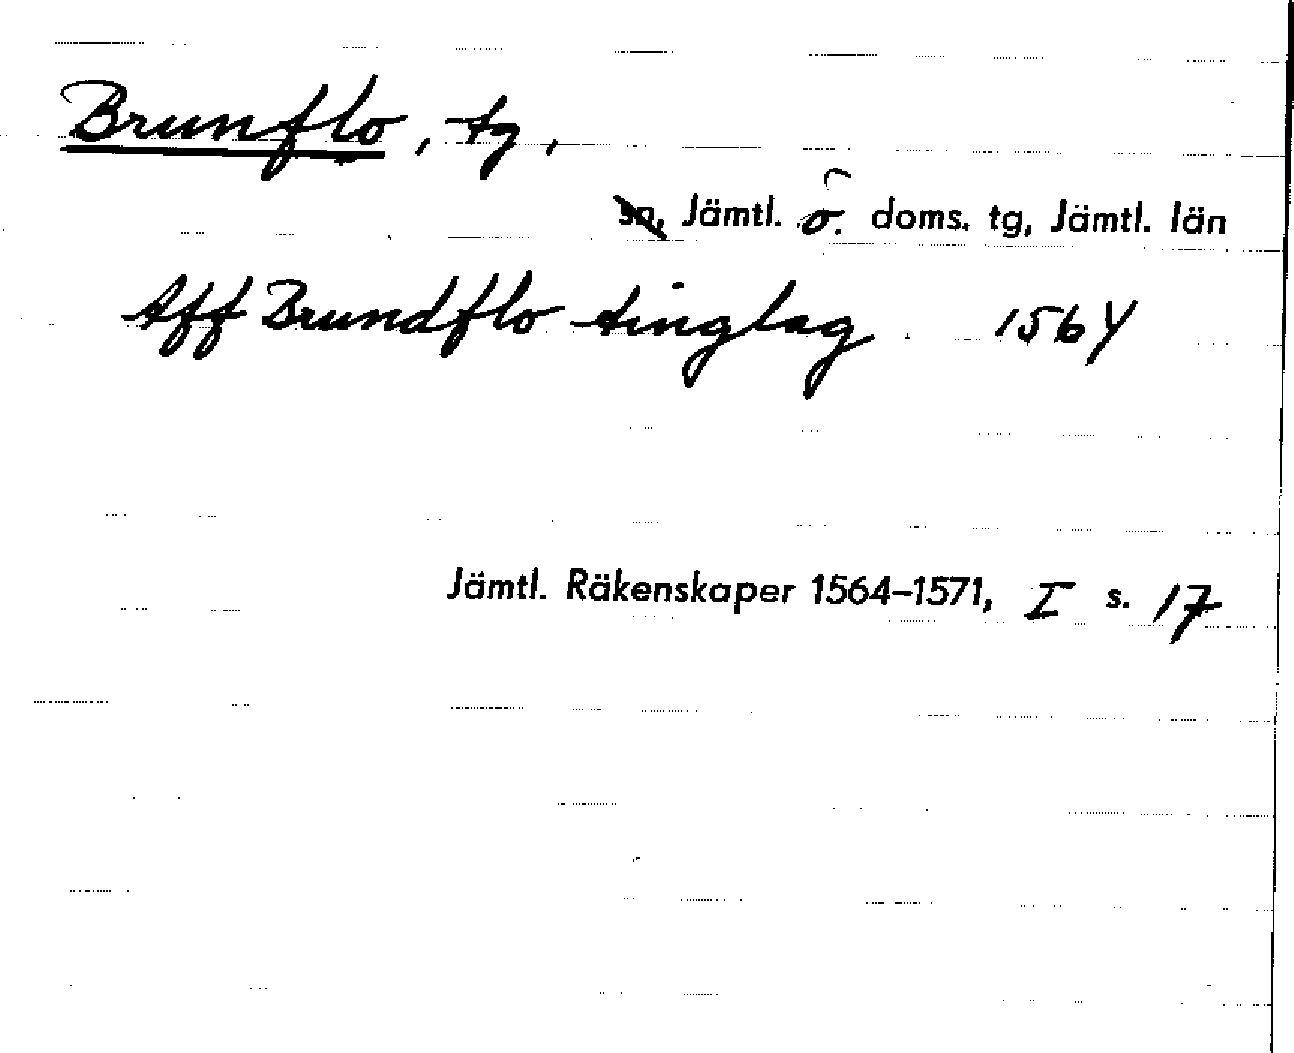 Brunflo, tg,
sn, Jämtl. ö. doms. tg, Jämtl. län
Aff Brundflo tinglag 1564
Jämtl. Räkenskaper 1564–1571, I s. 17